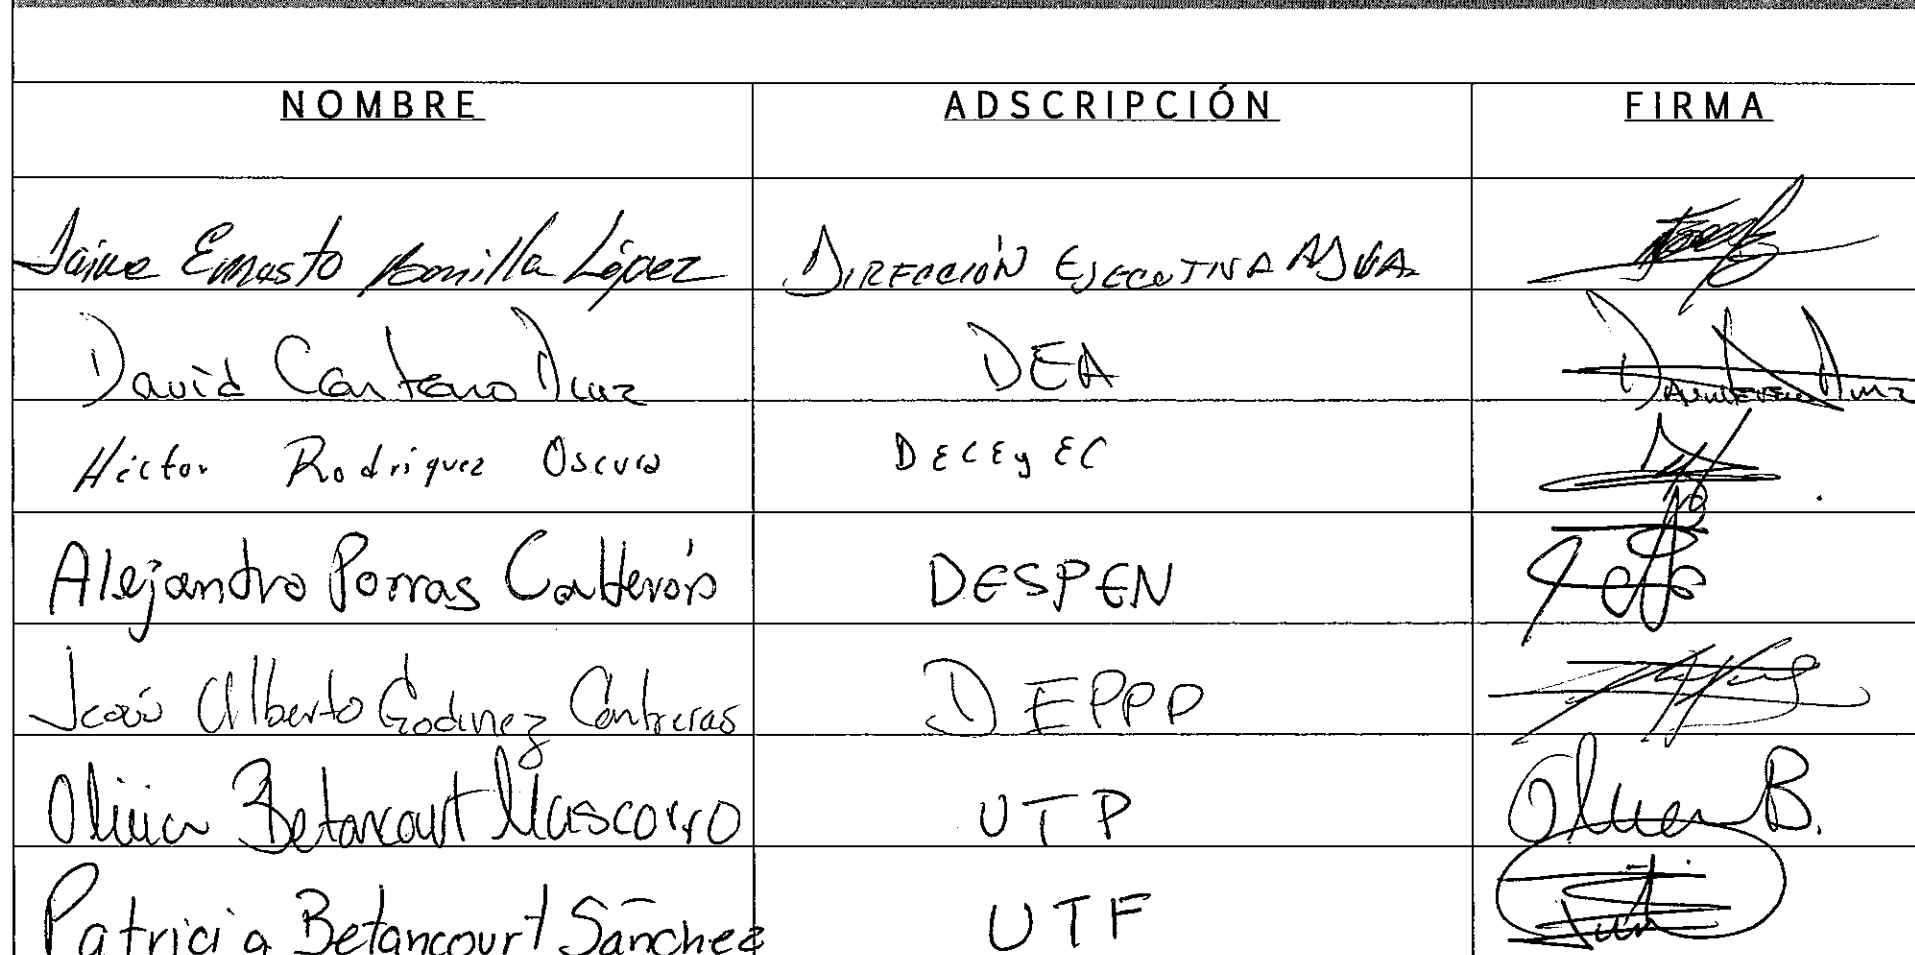 NOMBRE ADSCRIPCIÓN FIRMA
Jaime Ernesto Bonilla López DIRECCIÓN EJECUTIVA
David Ruiz DEA
Héctor Rodriguez DECEyEC
Alejandro Porras Calderón DESPEN
Alberto Godinez Contreras DEPPP
Olivia Betancourt Mascorro UTP Olivia B.
Patricia Betancourt Sánchez UTF